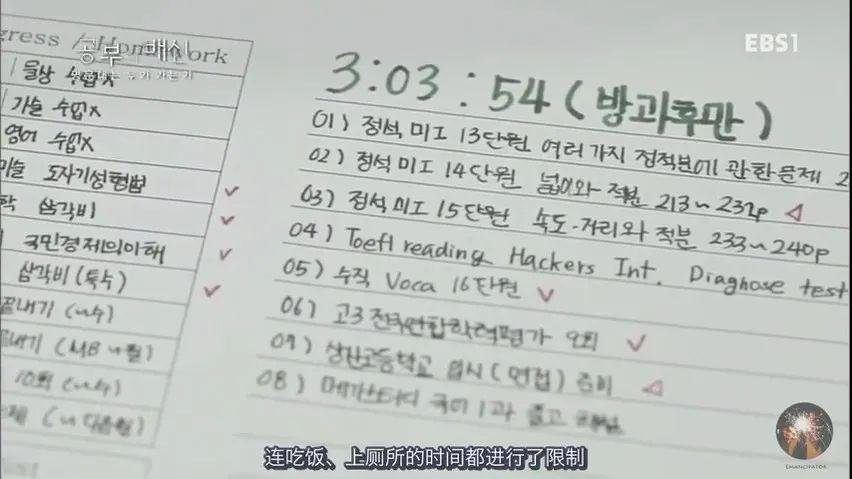 EBS1
공부의 배신
명문대는 누가 가는가
gress / Homework
물상 수업x
기술 수업x
영어 수업x
미술 도자기성형법
학 삼각비
국민경제의이해
삼각비(특수)
끝내기 (u수)
10회 (u수)
3:03:54 (방과후만)
01) 정석 미I 13단원 여러가지 정적분에 관한문제 2
02) 정석 미I 14단원 넓이와 적분 213~232p
03) 정석 미I 15단원 속도·거리와 적분 233~240p
04) Toefl reading Hackers Int. Diagnose test
05) 수직 Voca 16단원
06) 고3 전국연합학력평가 2회
07) 상산고등학교 입시(면접) 준비
08) 메가스터디 국어 1과 듣고
连吃饭、上厕所的时间都进行了限制
EMANCIPATOR